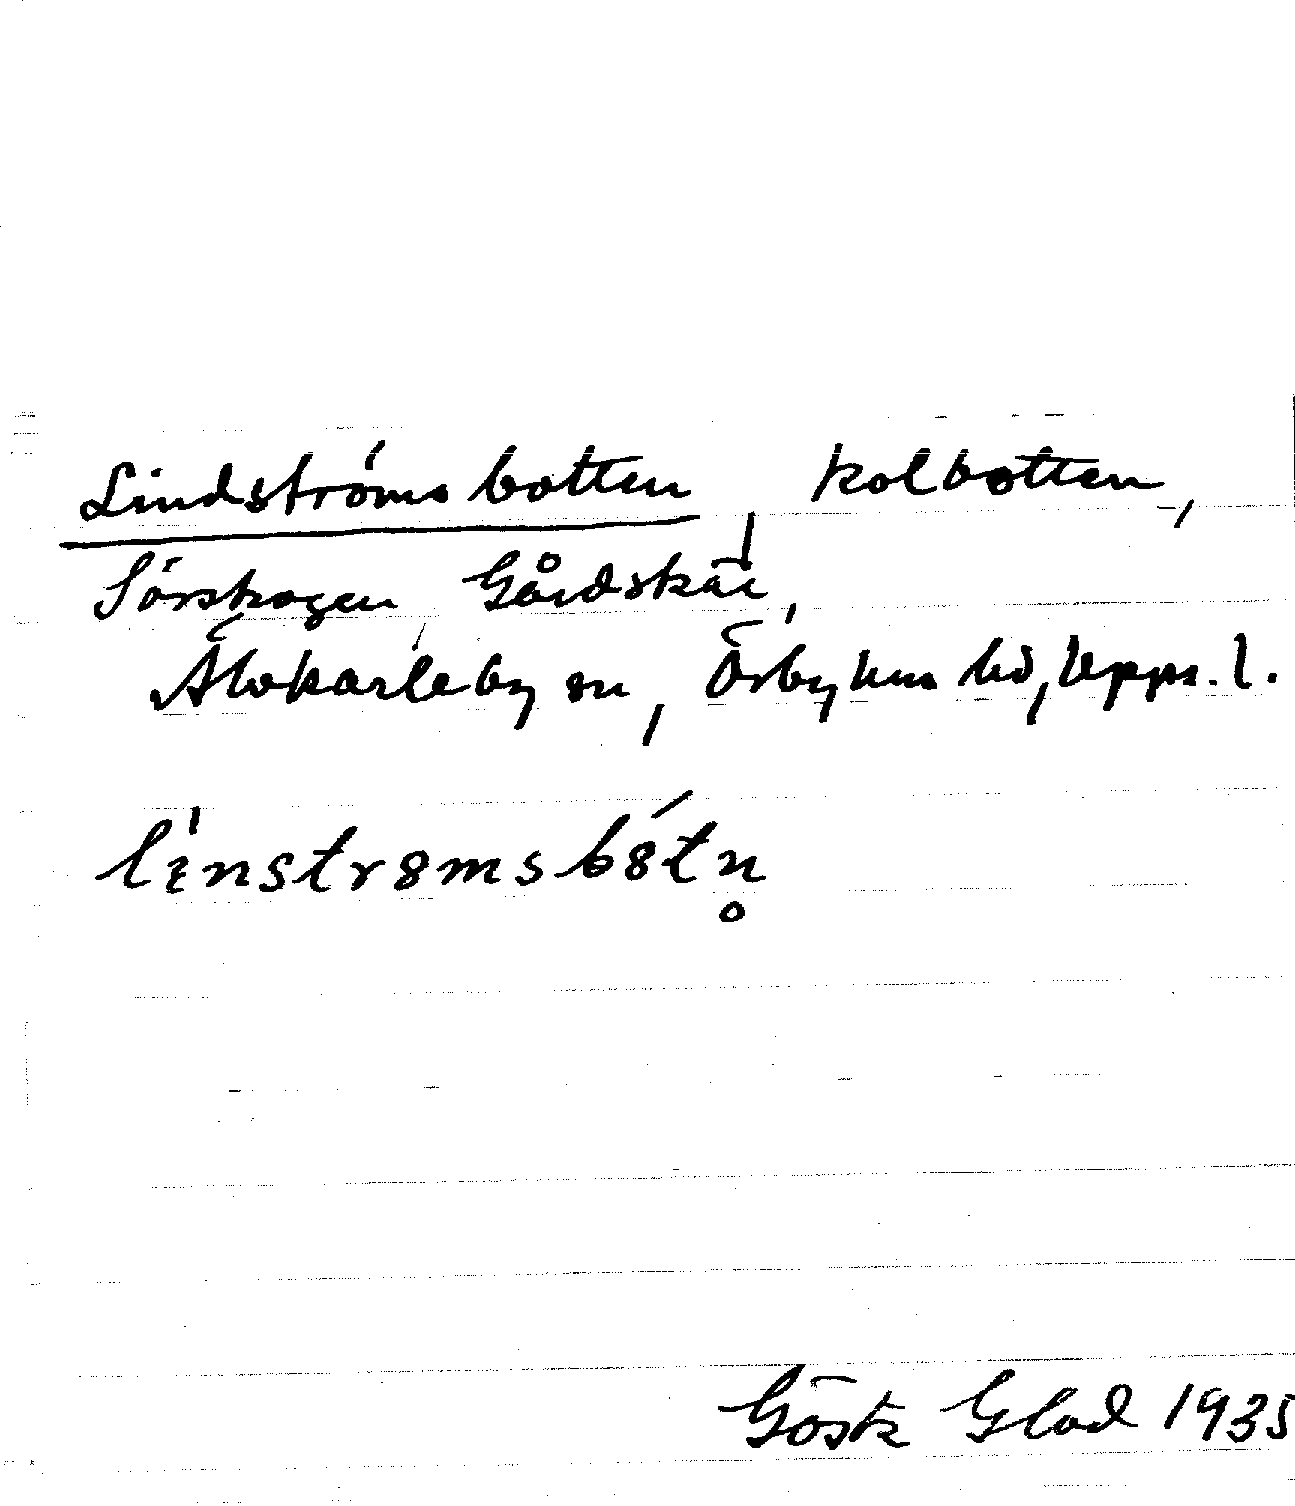 Lindströmsbotten, kolbotten,
Sörskogen, Gårdskär,
Älvkarleby sn, Örbyhus hd, Upps. l.
lìnstrømsbǿtn̥
Gösta Glad 1935